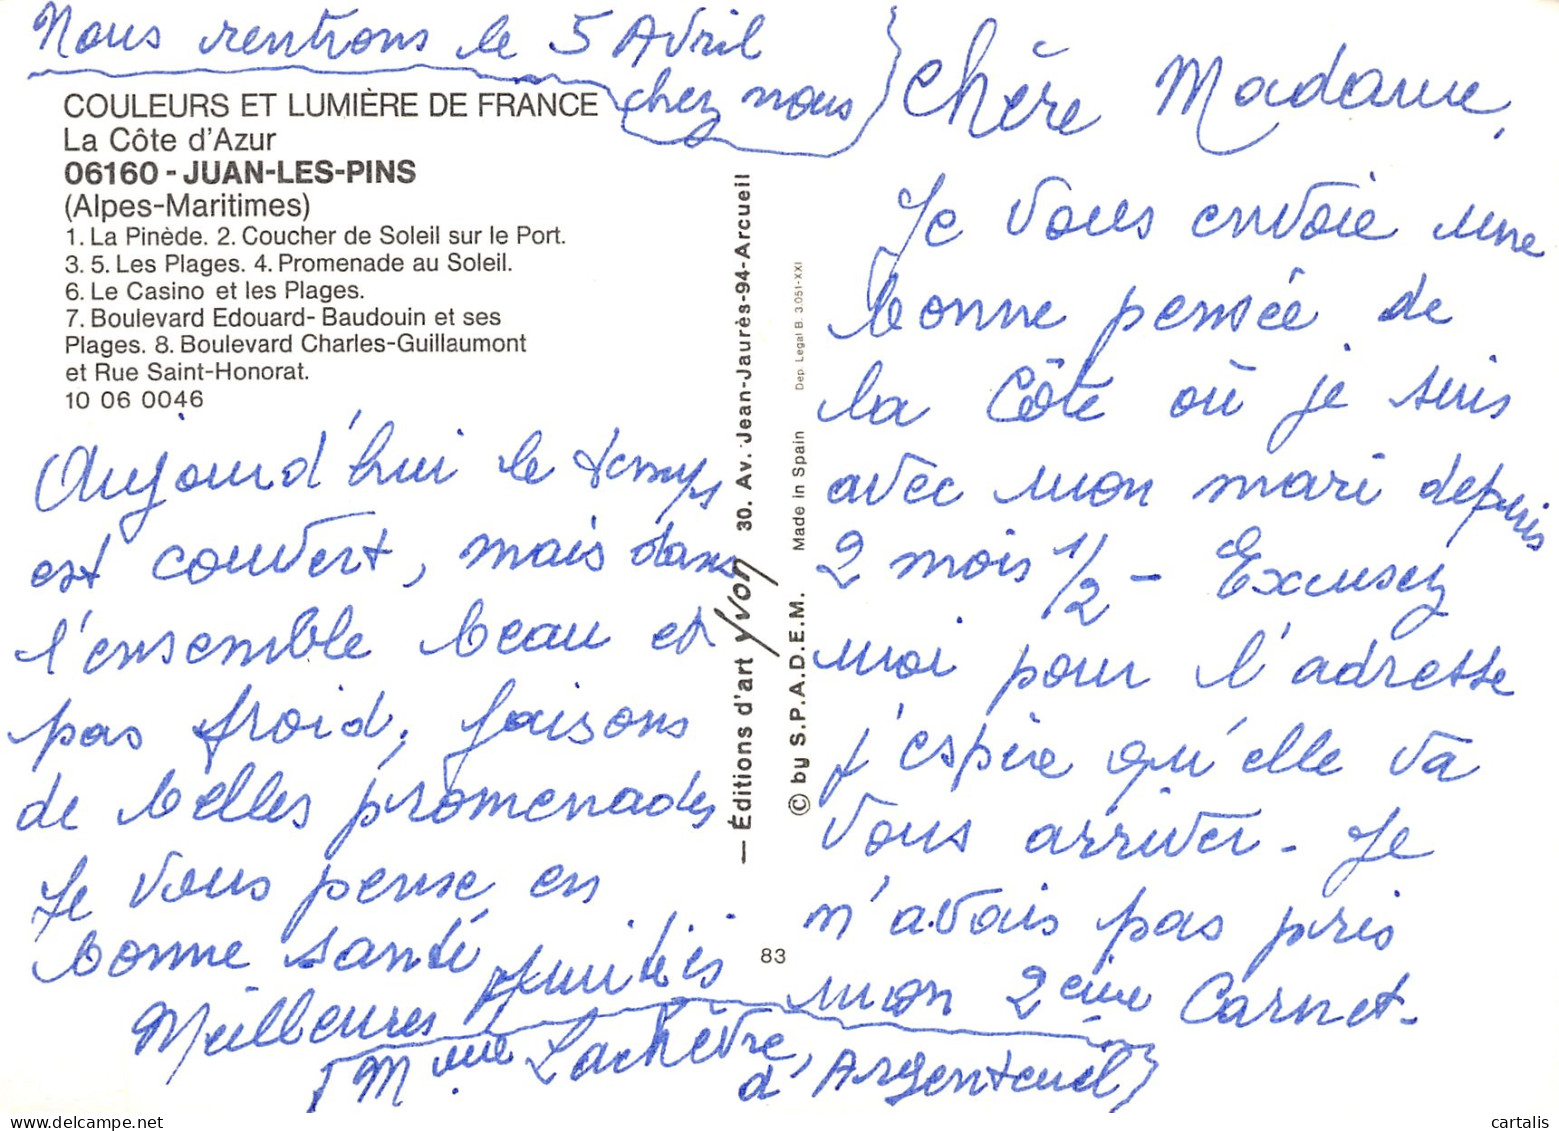 Nous rentrons le 5 Avril
chez nous
COULEURS ET LUMIÈRE DE FRANCE
La Côte d'Azur
06160 - JUAN-LES-PINS
(Alpes-Maritimes)
1. La Pinède. 2. Coucher de Soleil sur le Port.
3. 5. Les Plages. 4. Promenade au Soleil.
6. Le Casino et les Plages.
7. Boulevard Edouard- Baudouin et ses
Plages. 8. Boulevard Charles-Guillaumont
et Rue Saint-Honorat.
10 06 0046
— Éditions d'art Yvon 30. Av. Jean-Jaurès-94-Arcueil
© by S.P.A.D.E.M. Made in Spain Dep. Legal B. 3.051-XXI
83
Chère Madame,
Je vous envoie une
bonne pensée de
la Côte où je suis
avec mon mari depuis
2 mois 1/2 - Excusez
moi pour l'adresse
j'espère qu'elle va
vous arriver - Je
n'avais pas pris
mon 2ème Carnet.
Aujourd'hui le temps
est couvert, mais dans
l'ensemble beau et
pas froid, faisons
de belles promenades
Je vous pense en
bonne santé
Meilleures Amitiés
Mme Lachèvre,
d'Argenteuil
cartalis
www.delcampe.net